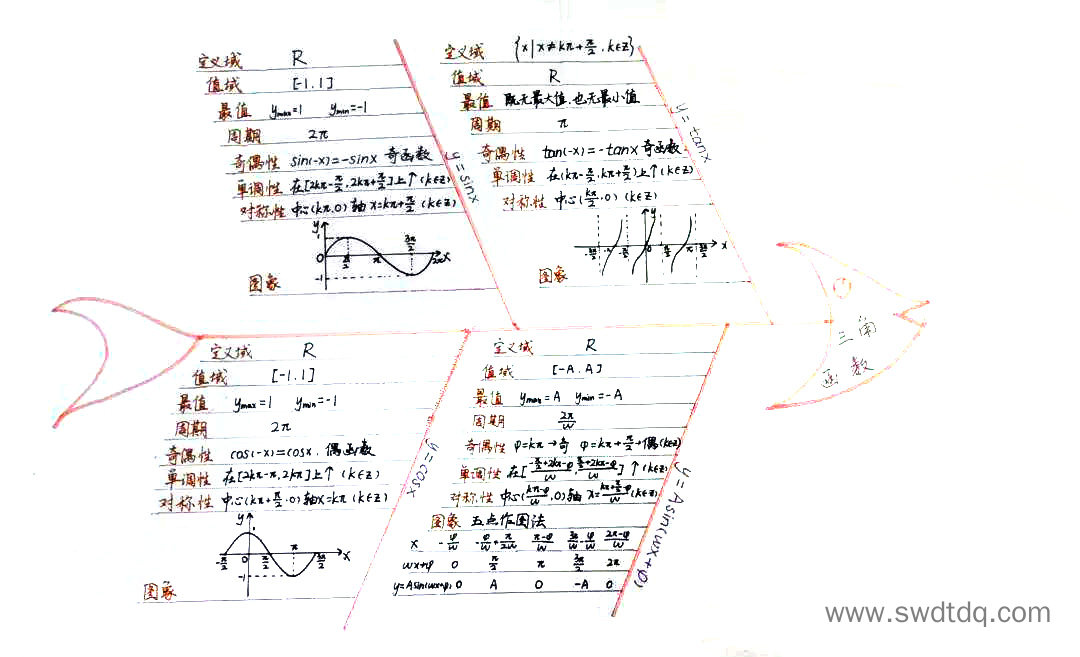 定义域 R
值域 [-1.1]
最值 ymax=1 ymin=-1
周期 2π
奇偶性 sin(-x)=-sinx 奇函数
单调性 在[2kπ-π/2,2kπ+π/2]上↑(k∈Z)
对称性 中心(kπ,0) 轴 x=kπ+π/2 (k∈Z)
图象
y 1 0 -1 π/2 π 3π/2 2π x
y=sinx
定义域 {x|x≠kπ+π/2,k∈Z}
值域 R
最值 既无最大值.也无最小值
周期 π
奇偶性 tan(-x)=-tanx 奇函数
单调性 在(kπ-π/2,kπ+π/2)上↑(k∈Z)
对称性 中心(kπ/2,0) (k∈Z)
图象
-3π/2 -π -π/2 0 π/2 π 3π/2 x y
y=tanx
三角
函数
定义域 R
值域 [-1.1]
最值 ymax=1 ymin=-1
周期 2π
奇偶性 cos(-x)=cosx.偶函数
单调性 在[2kπ-π,2kπ]上↑(k∈Z)
对称性 中心(kπ+π/2,0)轴x=kπ(k∈Z)
图象
y 1 -π/2 0 π/2 π 3π/2 x -1
y=cosx
定义域 R
值域 [-A.A]
最值 ymax=A ymin=-A
周期 2π/w
奇偶性 φ=kπ→奇 φ=kπ+π/2→偶(k∈Z)
单调性 在[(-π/2+2kπ-φ)/w,(π/2+2kπ-φ)/w]↑(k∈Z)
对称性 中心((kπ-φ)/w,0)轴 x=(kπ+π/2-φ)/w(k∈Z)
图象 五点作图法
x -φ/w -φ/w+π/2w (π-φ)/w 3π/2w-φ/w (2π-φ)/w
wx+φ 0 π/2 π 3π/2 2π
y=Asin(wx+φ) 0 A 0 -A 0
y=Asin(wx+φ)
www.swdtdq.com